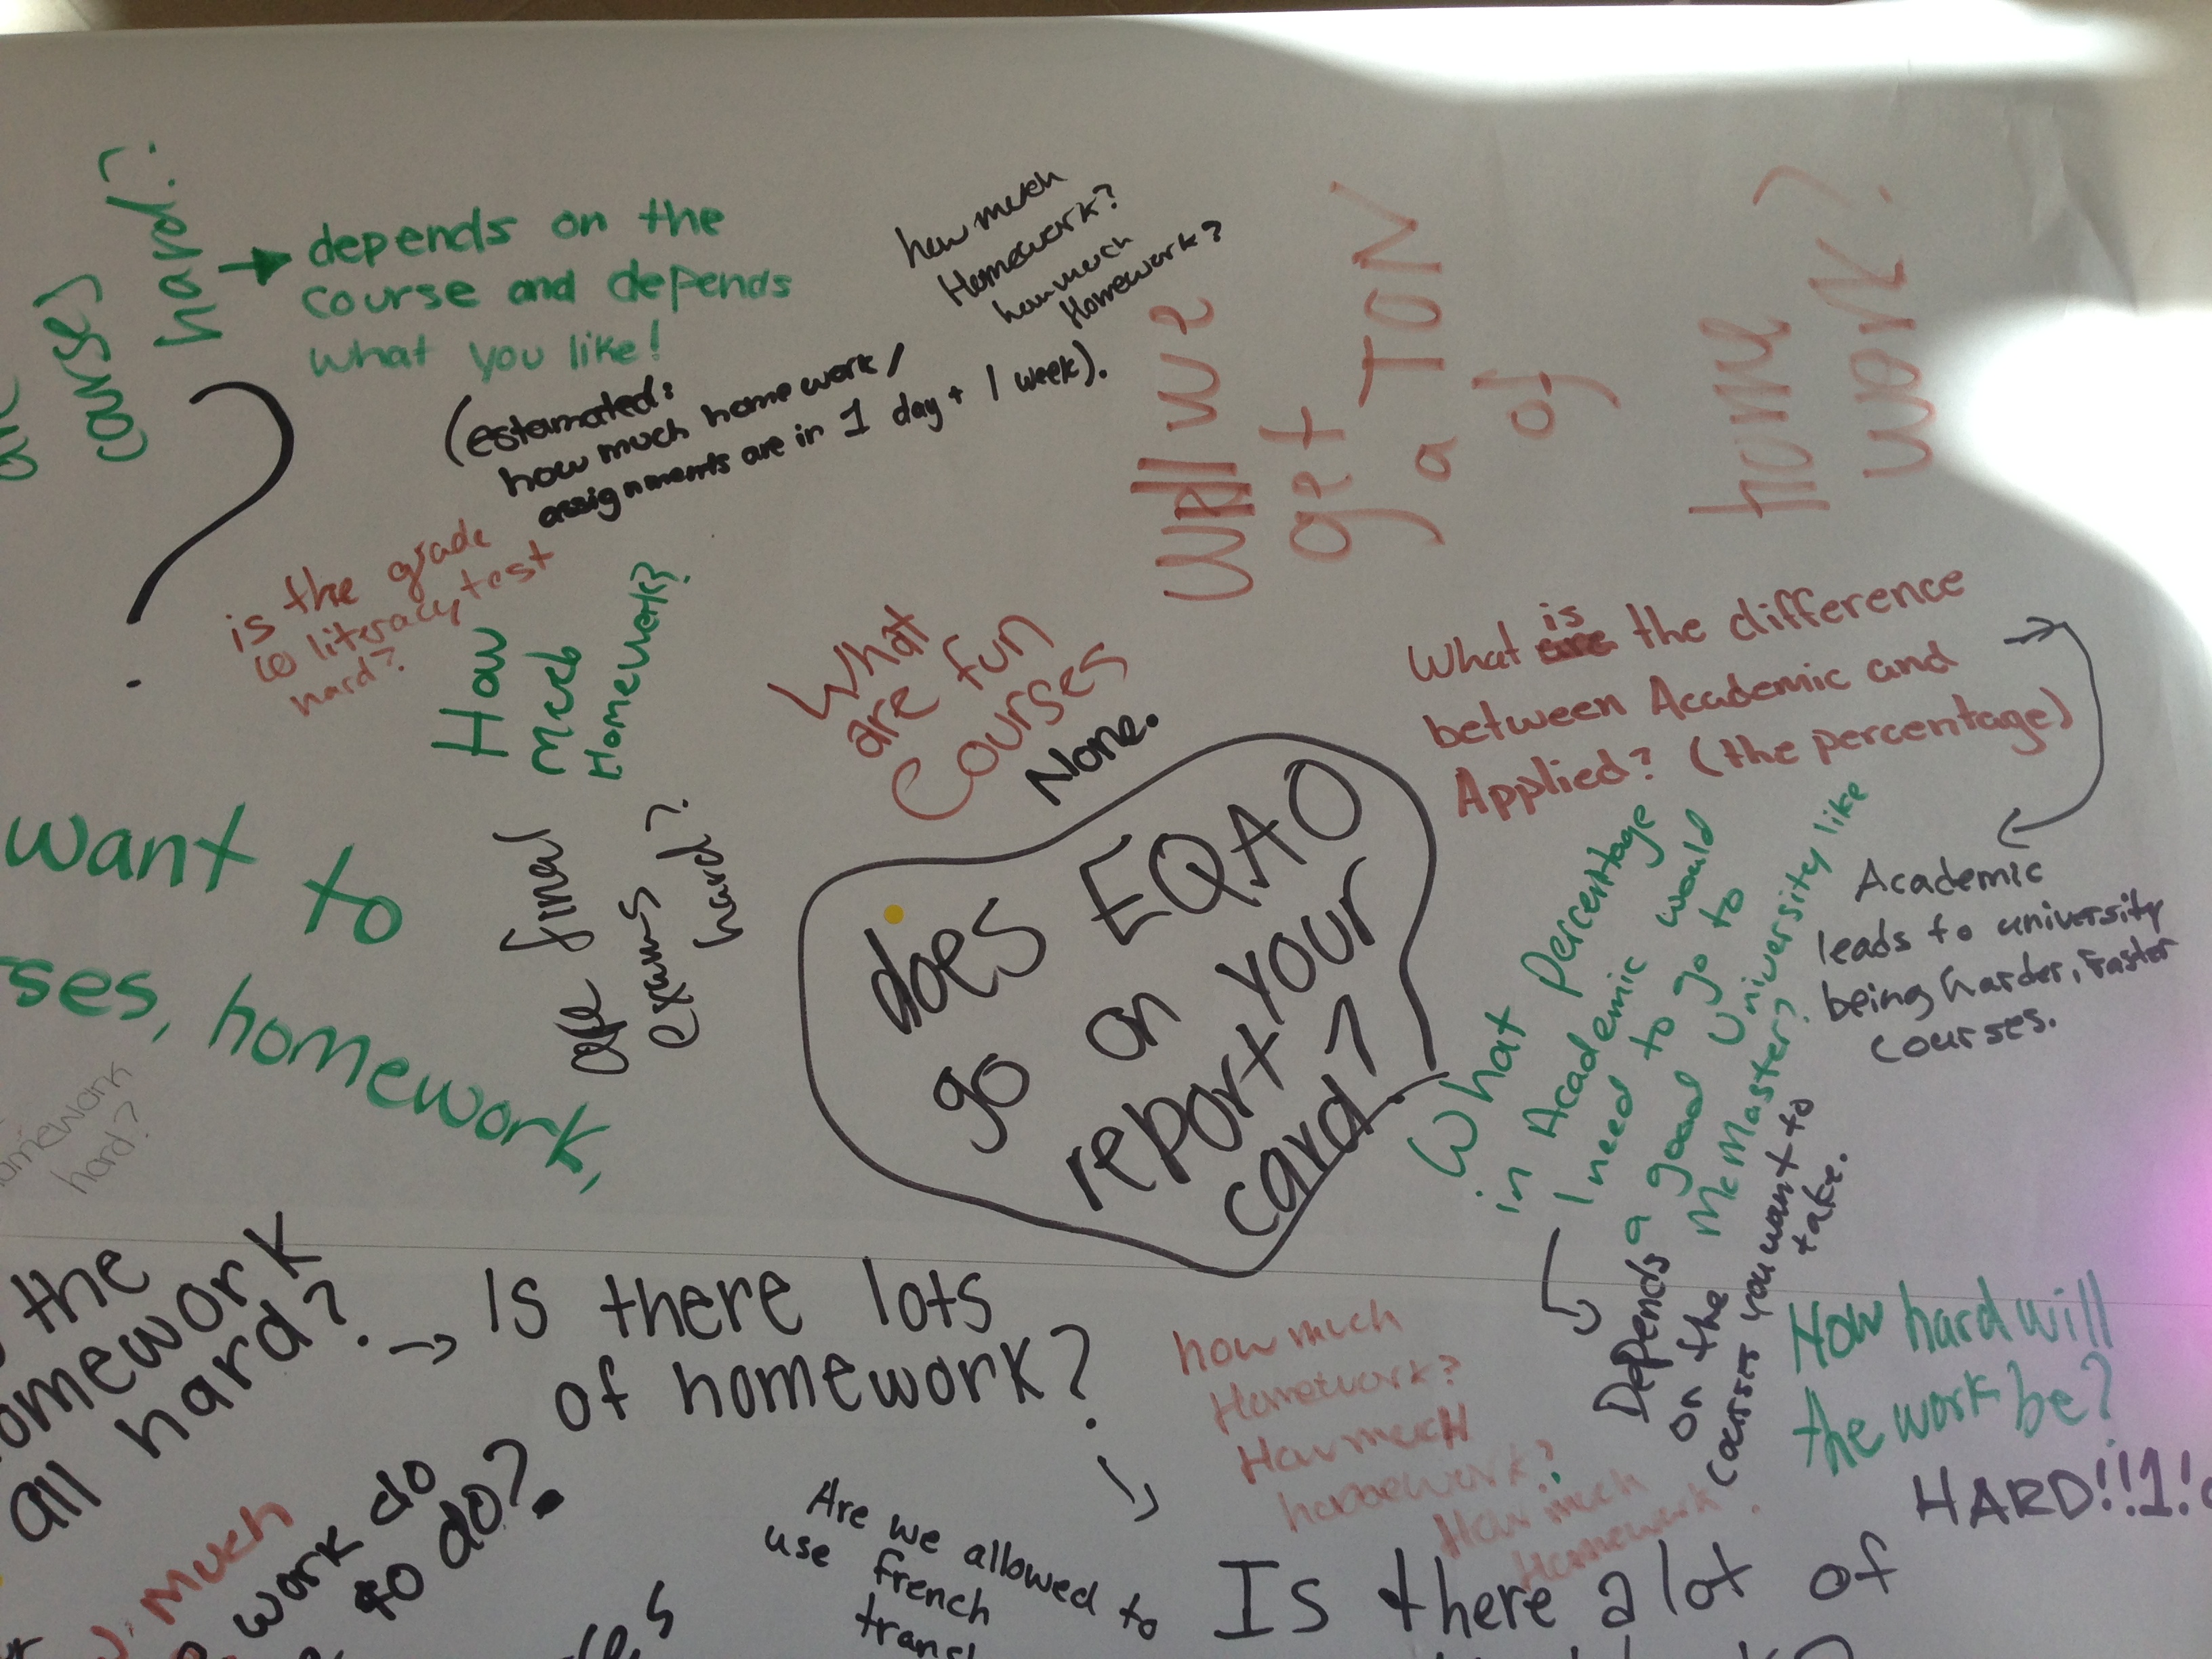 courses
hard?
depends on the
course and depends
what you like!
how much
Homework?
how much
Homework?
(estamated:
how much home work/
assignments are in 1 day + 1 week).
Will we
get
a TON
of
home
work?
is the grade
10 literacy test
hard?
How
Homework?
What
are fun
Courses
None.
What is the difference
between Academic and
Applied? (the percentage)
Academic
leads to university
being harder, faster
courses.
want to
ses, homework,
are final
exams
hard?
does EQAO
go on your
report
card?
What Percentage
in Academic would
I need to go to
a good University like
McMaster?
Depends
on the
courses you want to
take.
omework
hard?
the
omework
all hard?
Is there lots
of homework?
how much
Homework?
How much
homework?
How much
Homework?
How hard will
the work be?
HARD!!1!
much
work do
to do?
Are we allowed to
use french
transl
Is there a lot of